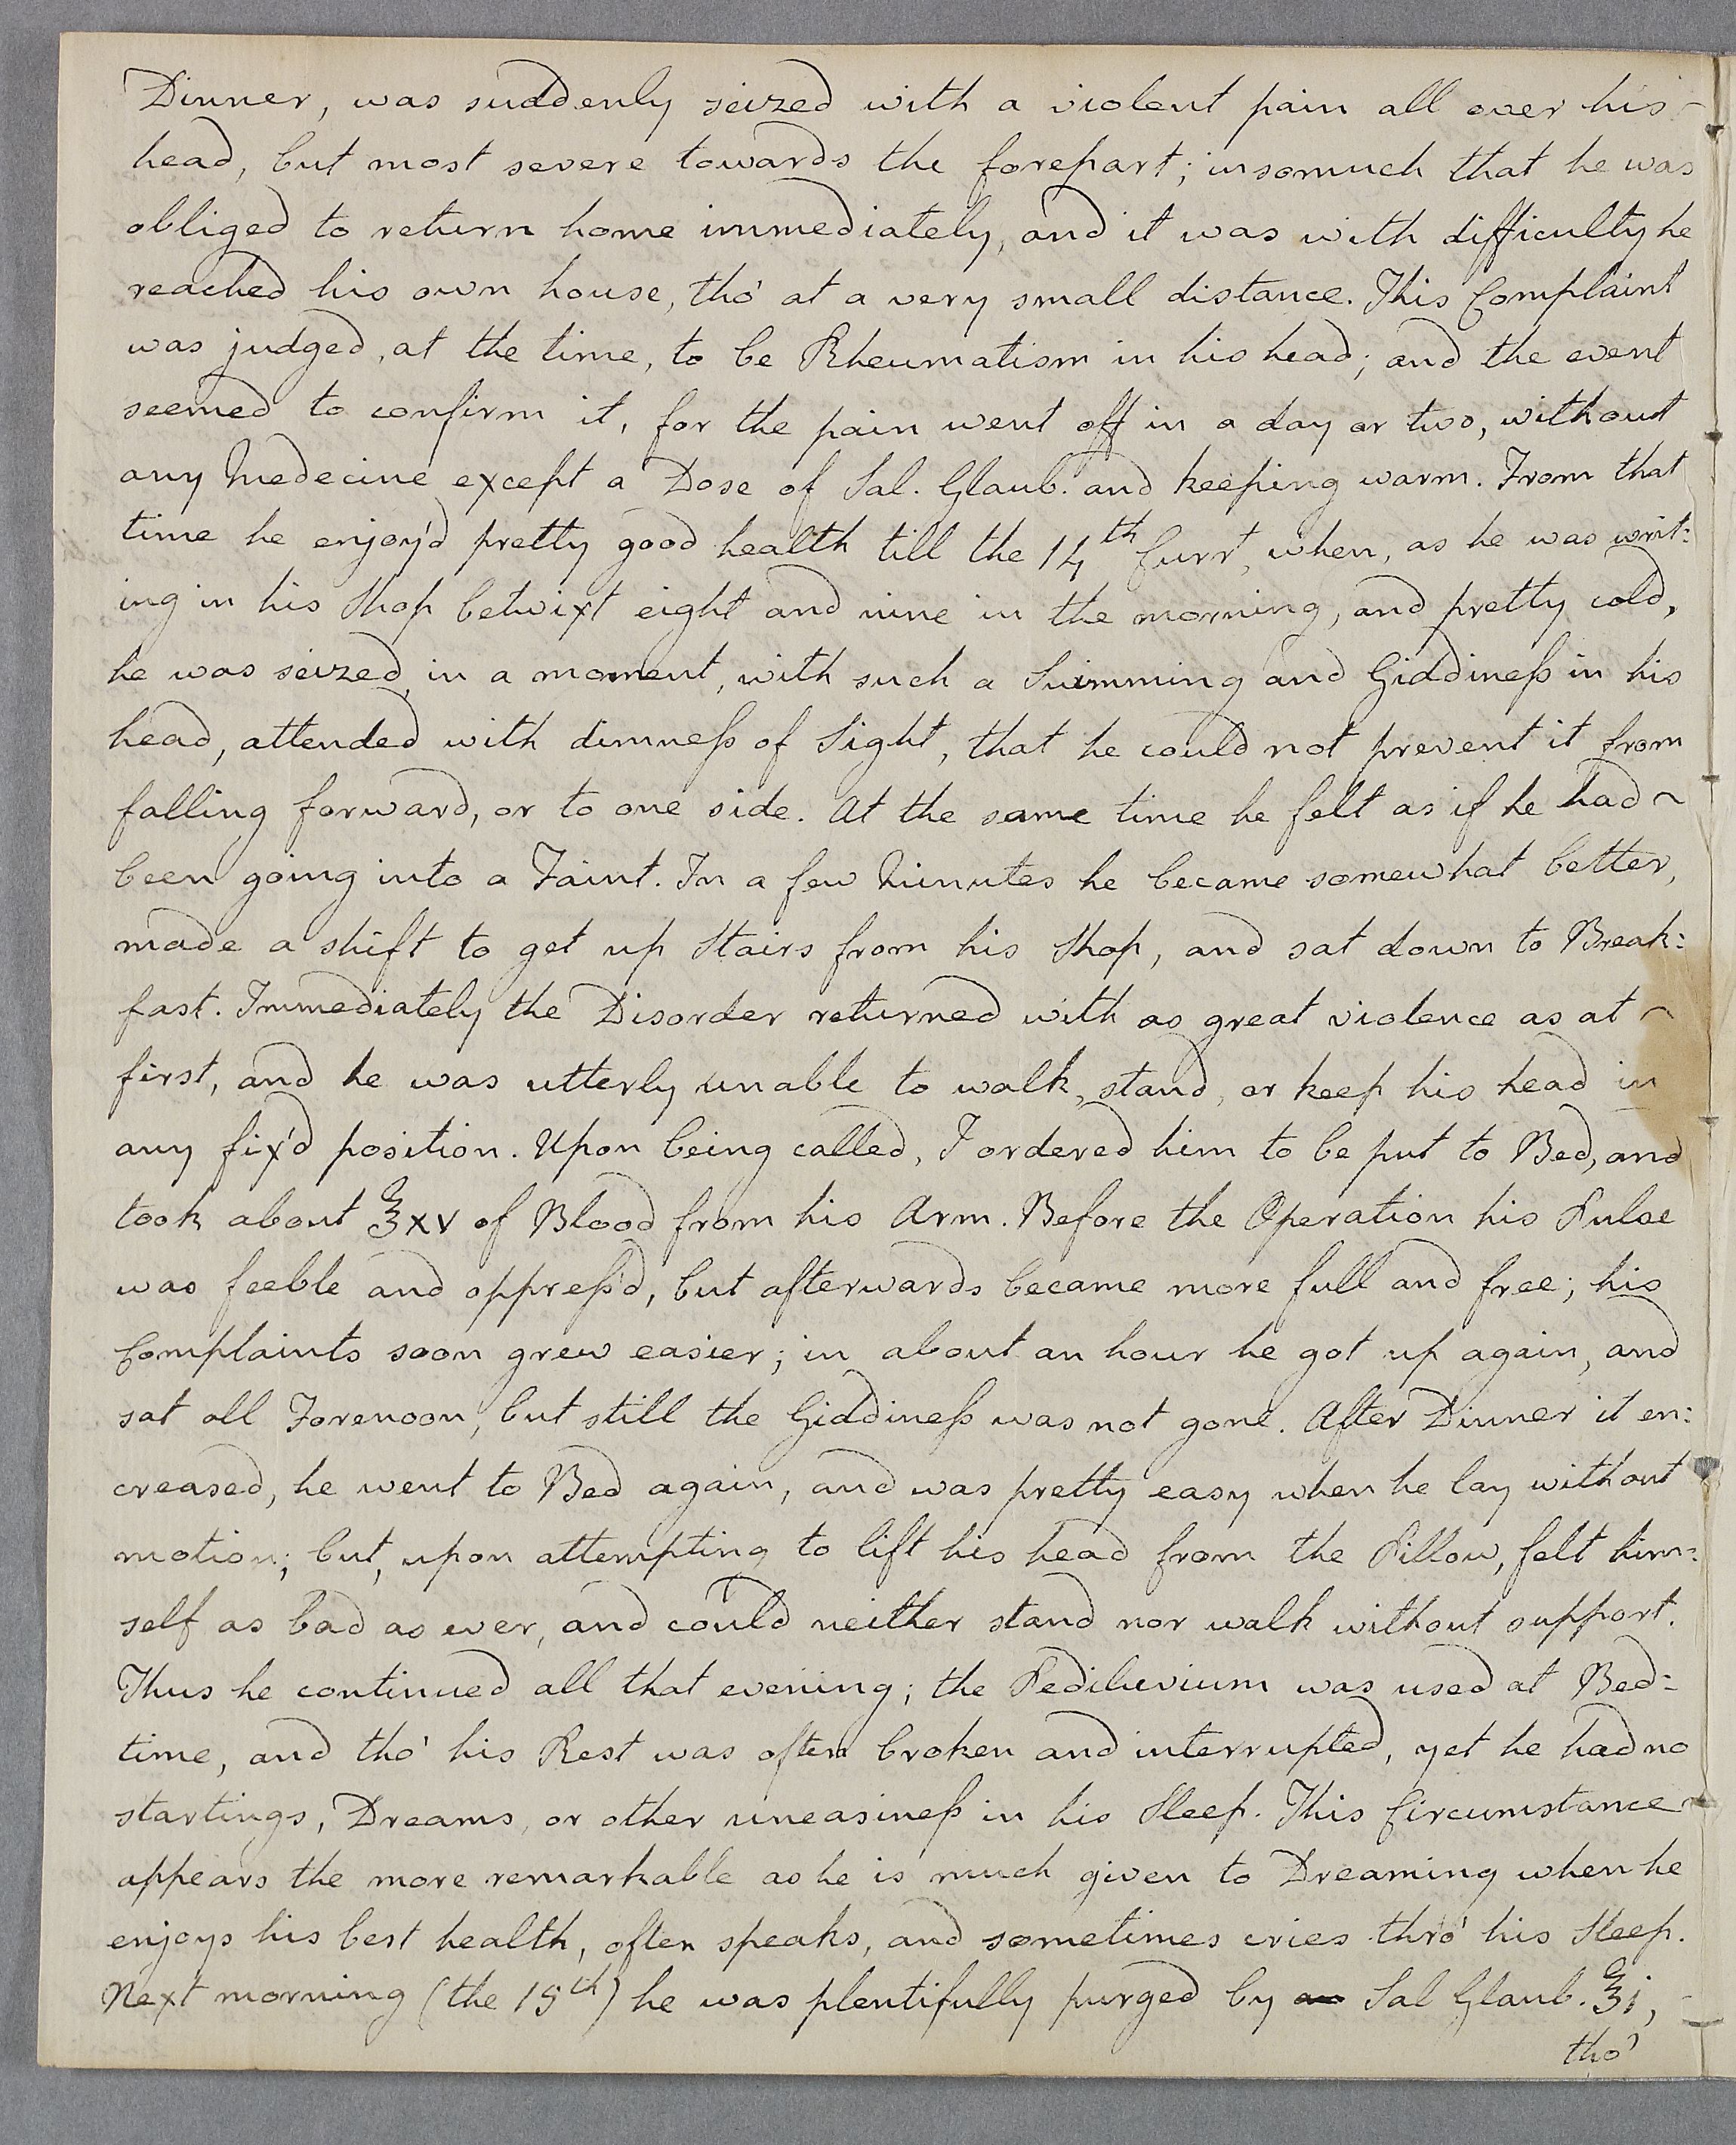 Dinner, was suddenly seized with a violent pain all over his
head, but most severe towards the forepart; insomuch that he was
obliged to return home immediately, and it was with difficulty he
reached his own house, tho' at a very small distance. This Complaint
was judged, at the time, to be Rheumatism in his head; and the event
seemed to confirm it, for the pain went off in a day or two, without
any Medecine except a Dose of Sal. Glaub. and keeping warm. From that
time he enjoy'd pretty good health till the 14th Curr^t, when, as he was writ:
ing in his Shop betwixt eight and nine in the morning, and pretty cold,
he was seized, in a moment, with such a Swimming and Giddineſs in his
head, attended with dimneſs of Sight, that he could not prevent it from
falling forward, or to one side. At the same time he felt as if he had ~
been going into a Faint. In a few Minutes he became somewhat better,
made a shift to get up Stairs from his Shop, and sat down to Break:
fast. Immediately the Disorder returned with as great violence as at ~
first, and he was utterly unable to walk, stand, or keep his head in
any fix'd position. Upon being called, I ordered him to be put to Bed, and
took about ℥xv of Blood from his Arm. Before the Operation his Pulse
was feeble and oppreſs'd, but afterwards became more full and free; his
Complaints soon grew easier; in about an hour he got up again, and
sat all Forenoon, but still the Giddineſs was not gone. After Dinner it en:
creased, he went to Bed again, and was pretty easy when he lay without
motion; but, upon attempting to lift his head from the Pillow, felt him:
self as bad as ever, and could neither stand nor walk without support.
Thus he continued all that evening; the Pediluvium was used at Bed:
time, and tho' his Rest was often broken and interrupted, yet he had no
startings, Dreams, or other uneasineſs in his Sleep. This Circumstance
appears the more remarkable as he is much given to Dreaming when he
enjoys his best health, often speaks, and sometimes cries thro' his Sleep.
Next morning (the 15th) he was plentifully purged by Sal Glaub. ℥i,
tho'